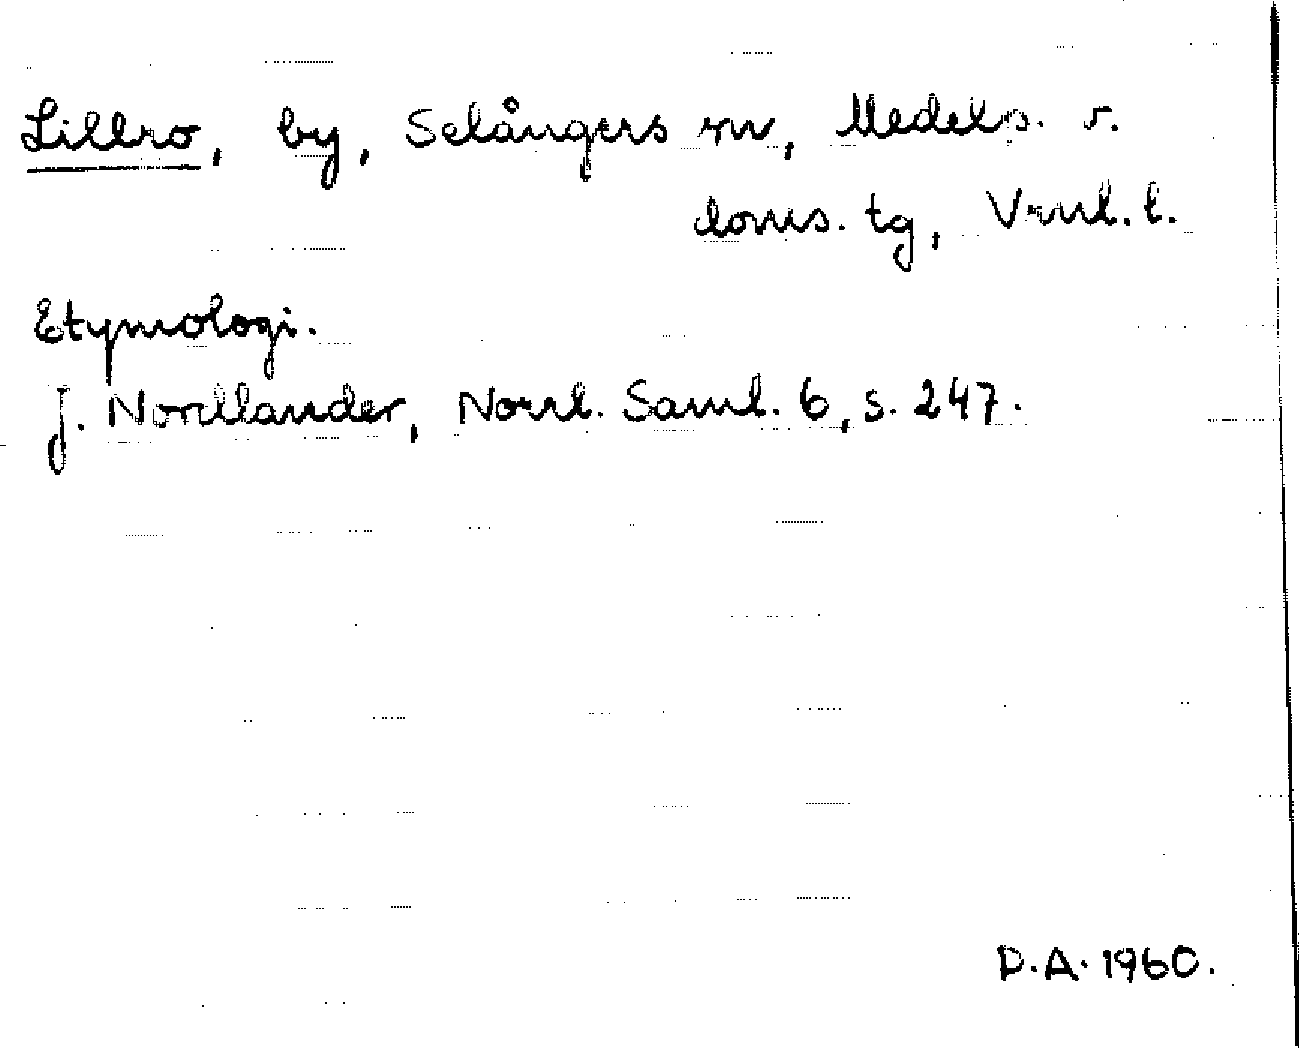 Lillro, by, Selångers sn, Medelp. v.
doms. tg, Vrnl. l.
Etymologi.
J. Nordlander, Norrl. Saml. 6, s. 247.
D.A. 1960.